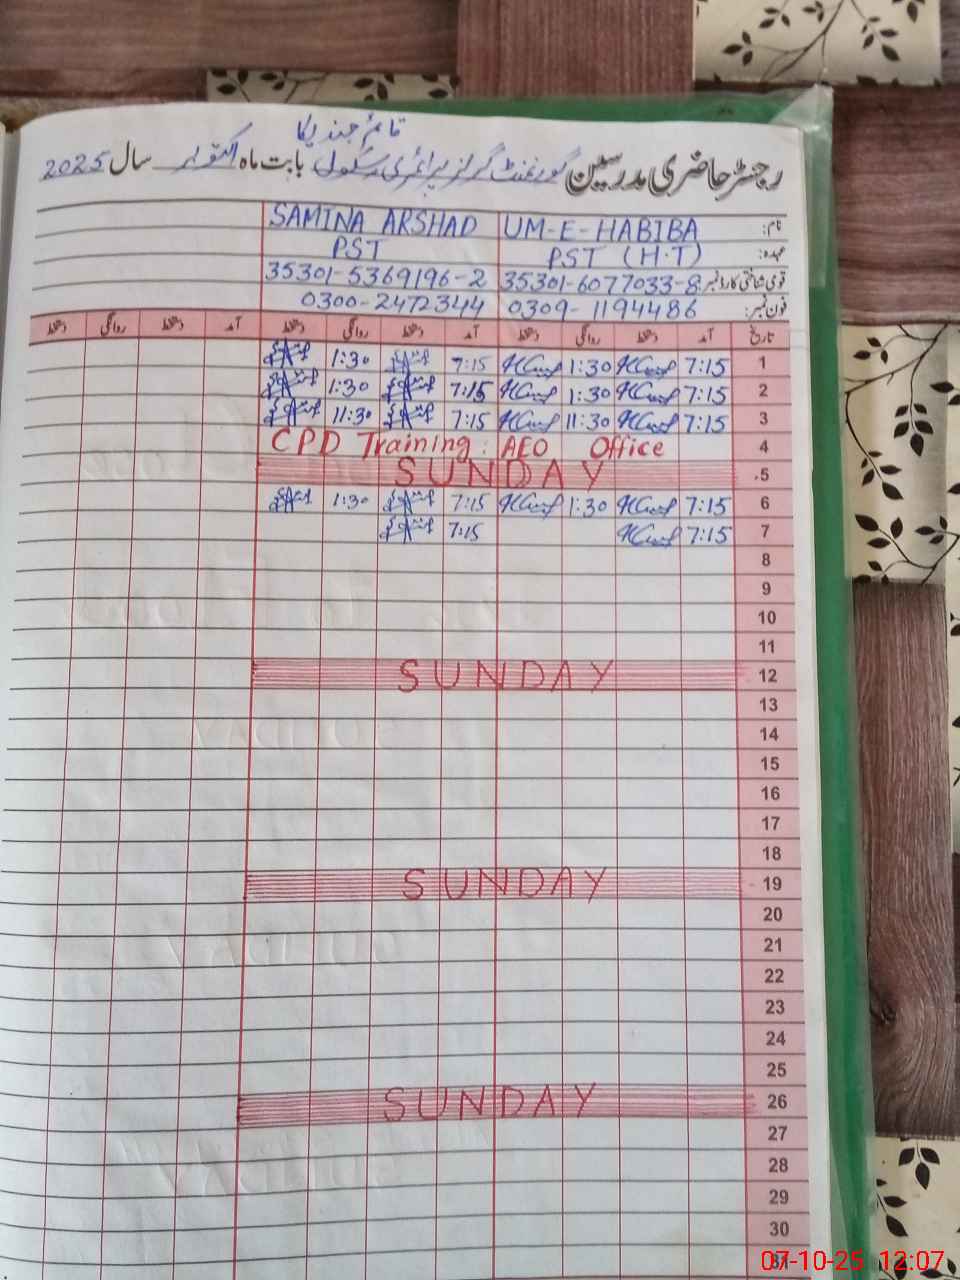 قائم جندیکا
رجسٹر حاضری مدرسین گورنمنٹ گرلز پرائمری سکول بابت ماہ اکتوبر سال 2025
نام: UM-E-HABIBA SAMINA ARSHAD
عہدہ: PST (H.T) PST
قومی شناختی کارڈ نمبر: 35301-6077033-8 35301-5369196-2
فون نمبر: 0309-1194486 0300-2472344
تاریخ آمد دستخط روانگی دستخط آمد دستخط روانگی دستخط آمد دستخط روانگی دستخط
1 7:15 1:30 7:15 1:30
2 7:15 1:30 7:15 1:30
3 7:15 11:30 7:15 11:30
4 CPD Training : AEO Office
5 SUNDAY
6 7:15 1:30 7:15 1:30
7 7:15 7:15
8
9
10
11
12 SUNDAY
13
14
15
16
17
18
19 SUNDAY
20
21
22
23
24
25
26 SUNDAY
27
28
29
30
31
07-10-25 12:07